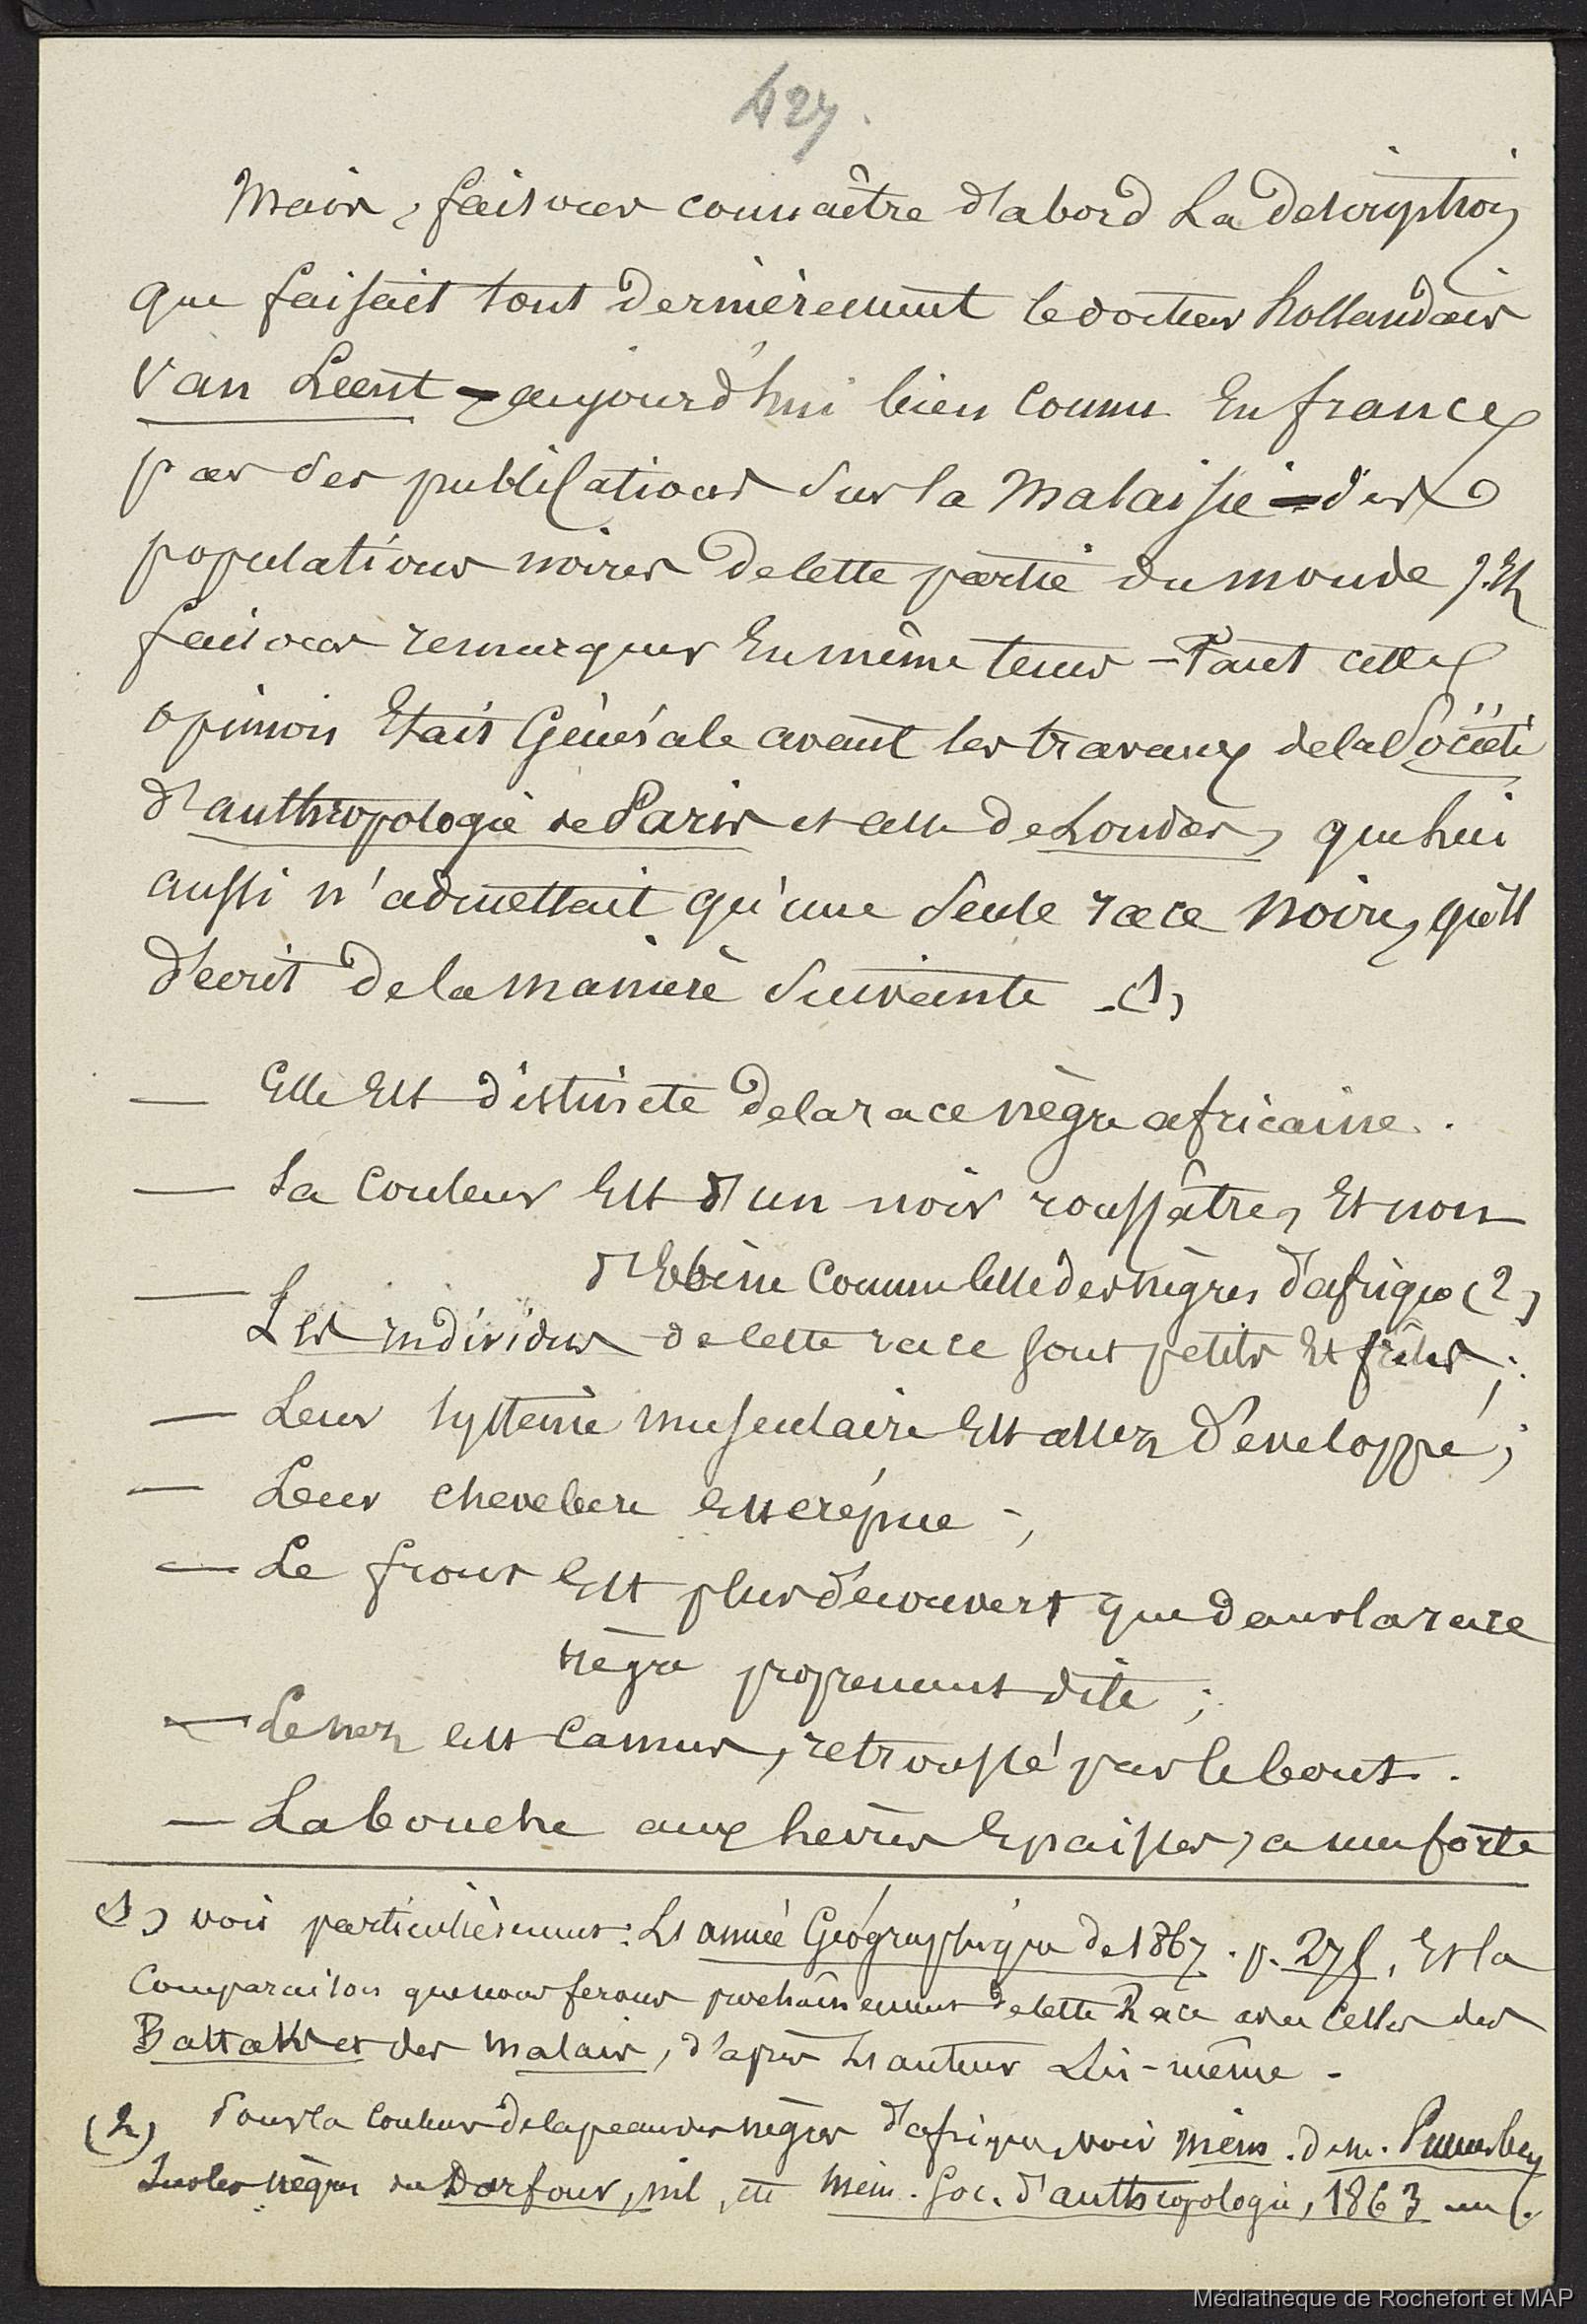 427.
Mais, faisons connaître d'abord la description
que faisait tout dernièrement le docteur hollandais
Van Leent - aujourd'hui bien connu en france
par des publications sur la Malaisie - des
populations noires de cette partie du monde, Et
faisons remarquer En même tems - tant cette
opinion Etait Générale avant les travaux de la Société
d'anthropologie de Paris et celle de Londres, que lui
aussi n'admettait qu'une seule race noire, qu'il
décrit de la manière suivante - (1)
— Elle Est distincte de la race nègre africaine.
— Sa couleur Est d'un noir roussâtre, Et non
d'Ebène comme celle des nègres d'afrique (2)
— Les individus de cette race sont petits Et frêles ;
— Leur système musculaire Est assez développé ;
— Leur chevelure Est crépue - ;
— Le front Est plus découvert que dans la race
nègre proprement dite ;
— Le nez Est camus, retroussé par le bout.
— La bouche aux lèvres Epaisses, a une forte
(1) voir particulièrement : L'année Géographique de 1867. p. 275. Et la
Comparaison que nous ferons prochainement de cette Race avec celles des
Battaks et des Malais, d'après L'auteur Lui-même -
(2) Pour la couleur de la peau des nègres d'afrique, voir mém. de m. Pruner-bey
Sur les nègres du Darfour, nil, etc Mém. Soc. d'anthropologie, 1863
Médiathèque de Rochefort et MAP